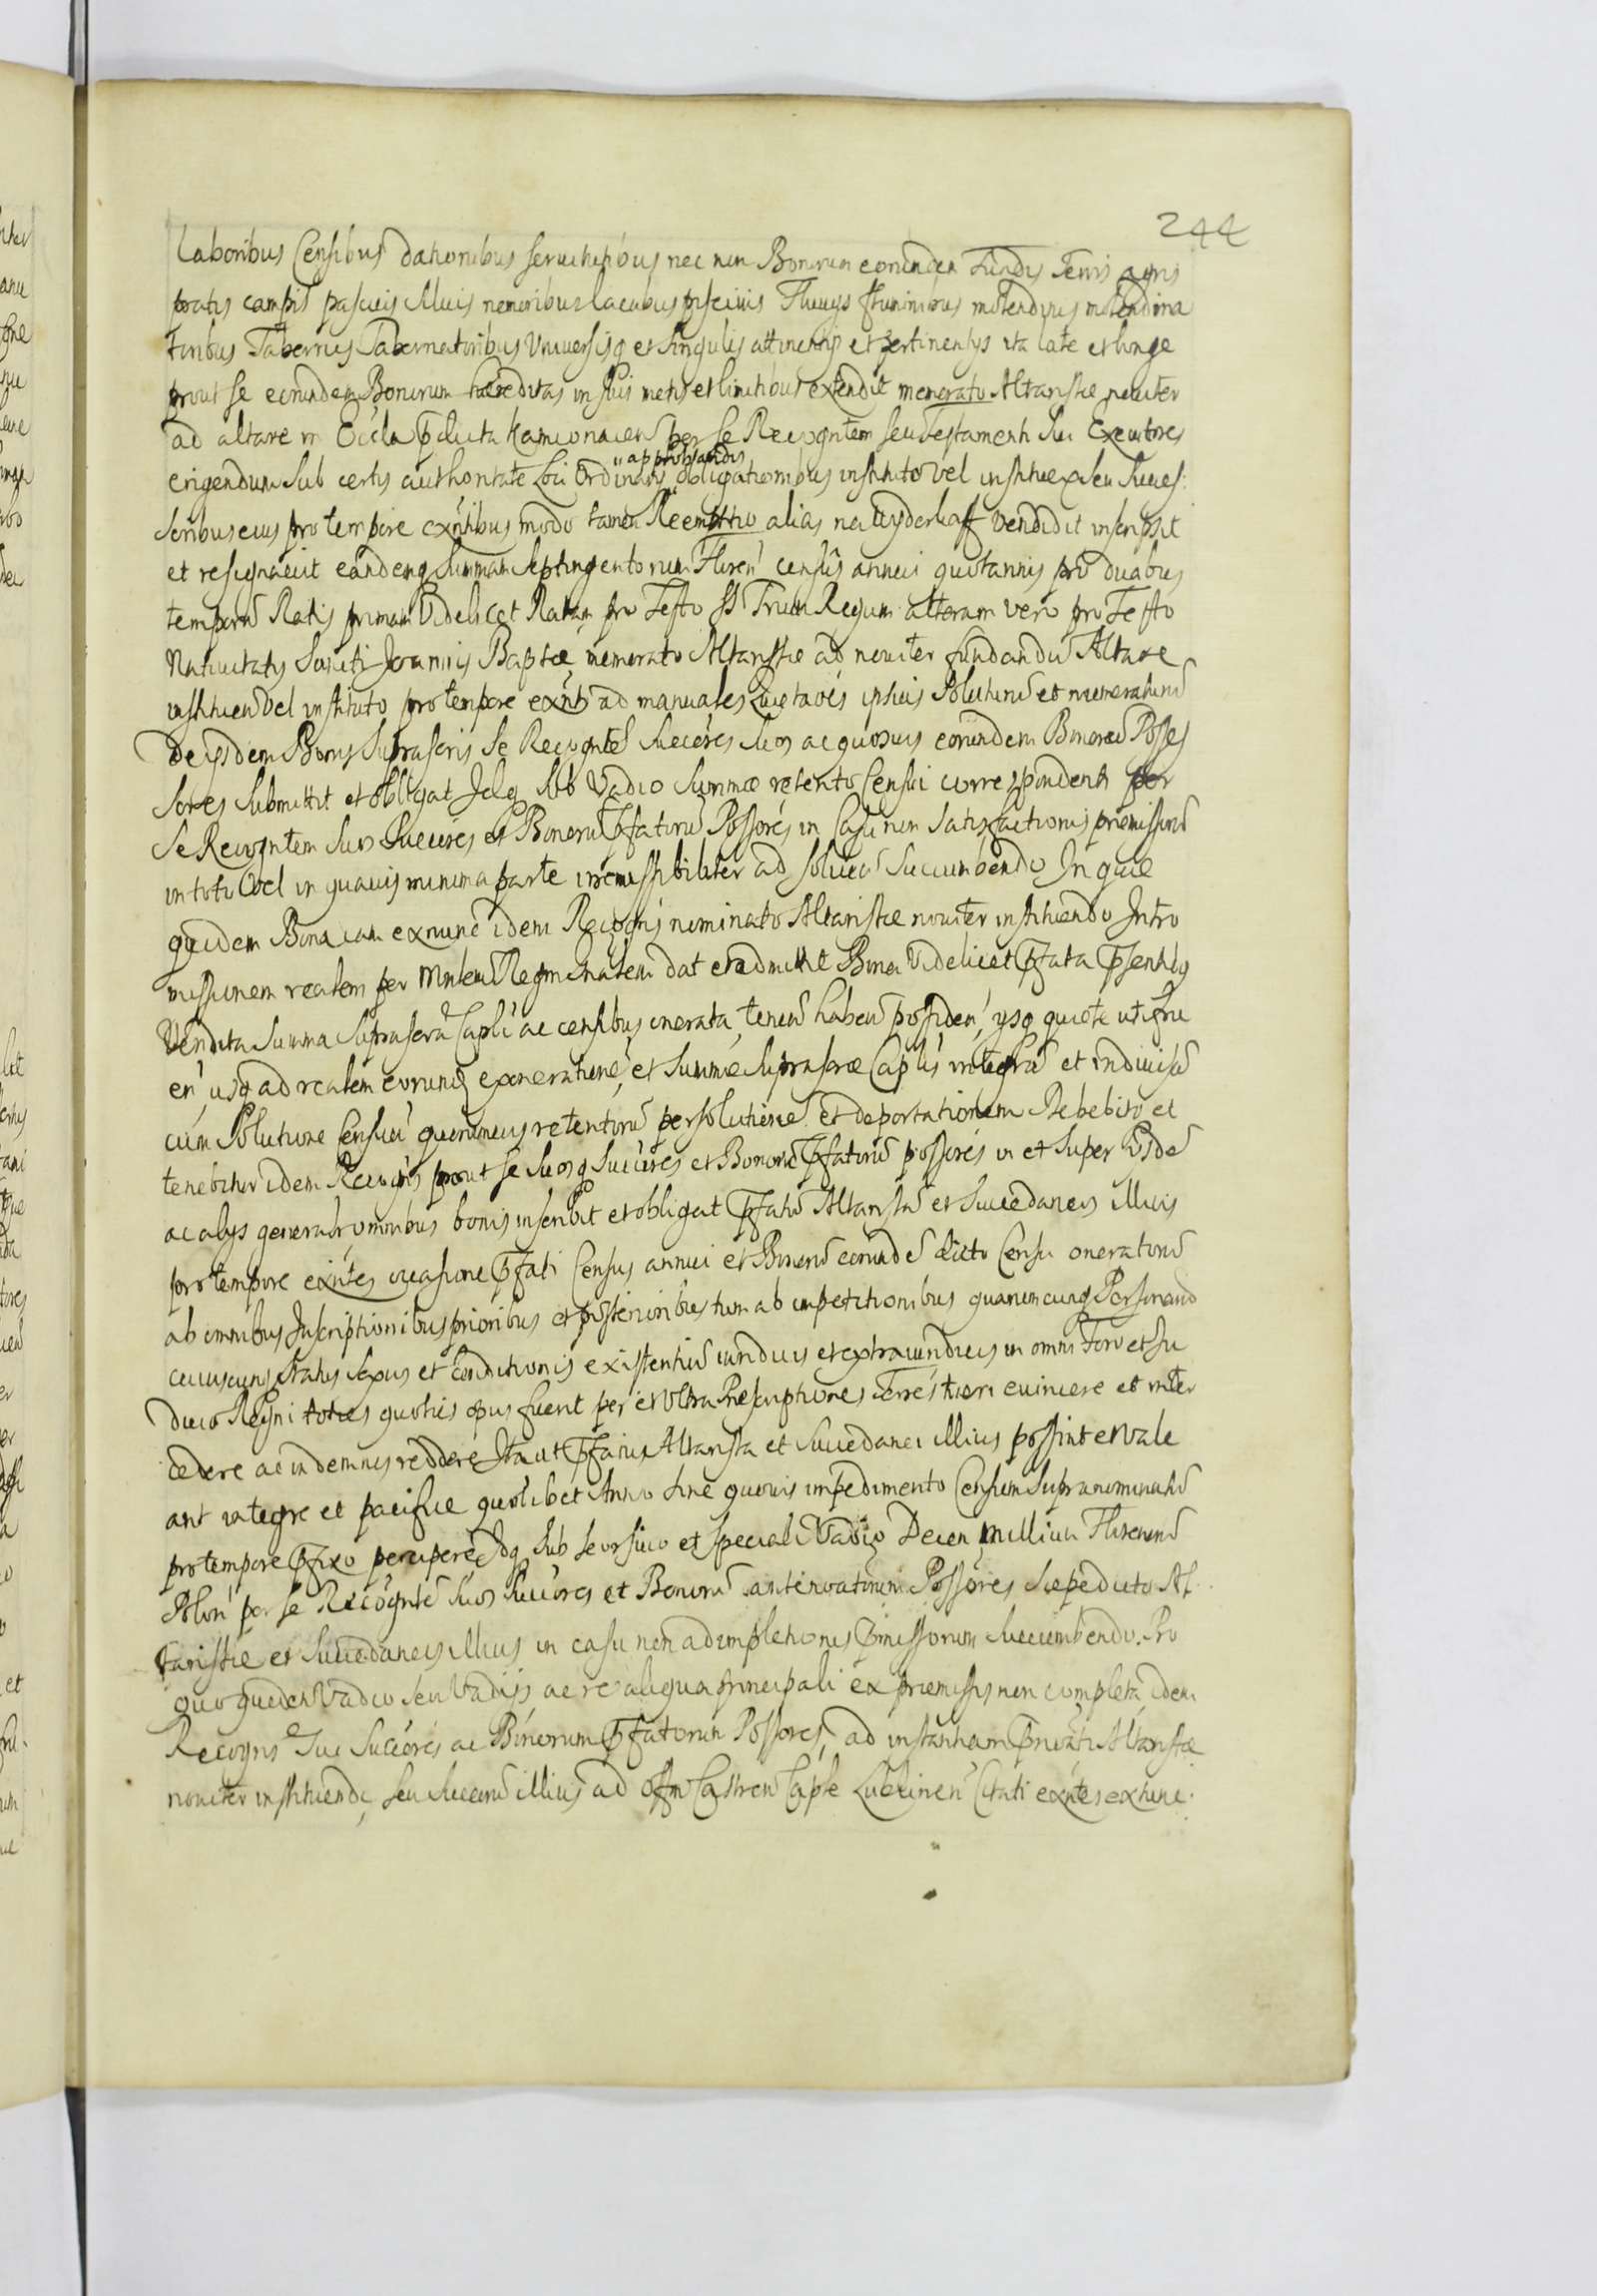 244
laboribus Censibus dationibus servitutibus nec non Bonorum eorundem Fundis Terris agris
pratis campis pascuis silvis nemoribus lacubus piscinis Fluvys fluminibus molendinis molendina
toribus Tabernis Tabernatoribus Universisq et singulis attinentys et pertinentys ita late et longe
prout se eorundem Bonorum haereditas in suis metis et limitibus extendit memorato Altaristae noviter
ad altare in Eccla pdicta Kamionacen per se Recogntem seu Testamenti sui Exeutores
erigendum sub certis authoritate Loci Ordinarij approbandis obligationibus instituto vel instituen seu Succes
soribus eius pro tempore exntibus modo tamen Reemptio alias na wyderkaff vendidit inscripsit
et resignavit eandemq summam septingentorum Floren census annui quotannis pro duabus
temporu Ratis primam Videlicet Ratam pro Festo SS Trium Regum alteram vero pro Festo
Nativitatis Sancti Joannis Baptae memorato Altaristae ad noviter fundandu Altare
instituen vel instituto pro tempore exnti ad manuales quietaoes ipsius soluturu et numeraturu
De ysdem Bonis suprascris se Recogntes succeores suos ac quosvis eorundem Bonoru Posses
sores submittit et obligat Idq sub Vadio summae retento Censui correspondenti per
se Recogntem suos Succeores et Bonoru pfatoru Possores in Casu non satisfactionis praemissoru
in toto Vel in quavis minima parte irremissibiliter ad solven succumbendo In quae
quidem Bona iam exnunc idem Recogns nominato Altaristae noviter instituendo Intro
missionem realem per Mnlem Regni dat et admittit Bona Videlicet pfata psentibq
Vendita summa suprascra Capli ac censibus onerata, tenen haben possiden, ysq quiete utifru
en, usq ad realem eorundem exonerationem, et summae suprascrae Caplis integra et indivisa
cum solutione Census quorumvis retentoru persolutione et deportationem Debebit et
tenebitur idem Recogns prout se suosq succeores et Bonoru pfatoru possores in et super ysde
ac alys generalr omnibus bonis inscribit et obligat pfatu Altarista et succedaneos illius
pro tempore exntes occasione pfati Census annui et Bonoru eorunde dicto Censu oneratoru
ab omnibus Inscriptionibus prioribus et posterioribus tum ab impetitionibus quarumcunq Personaru
cuiuscunq status sexus et conditionis existentiu iuridicis et extraiuridicis in omni Foro et Iu
dicio Regni toties quoties opus fuerit per et Ultra Praescriptiones Terrestrem evincere et inter
cedere ac indemnes reddere Ita ut pfatus Altarista et succedanei illius possint et vale
ant integre et pacifice quolibet Anno sine quovis impedimento Censum supranominatu
pro tempore pfixo percipere Idq sub seorsivo et speciali Vadio Decem Millium Florenoru
Polon per se Recognte suos succeores et Bonoru antenoatorum Possores saepedicto Al
taristae et succedaneis illius in casu non adimpletionis pmissorum succumbendo. Pro
quo quidem Vadio seu Vadijs ac re aliqua principali ex praemissis non completa idem
Recogns Sui Succeores ac Bonorum pfatorum Possores, ad instantiam pnoati Altaristae
noviter instituendi, seu succeoru illius ad Offm Castren Caple Lublinen Citati exntes extunc